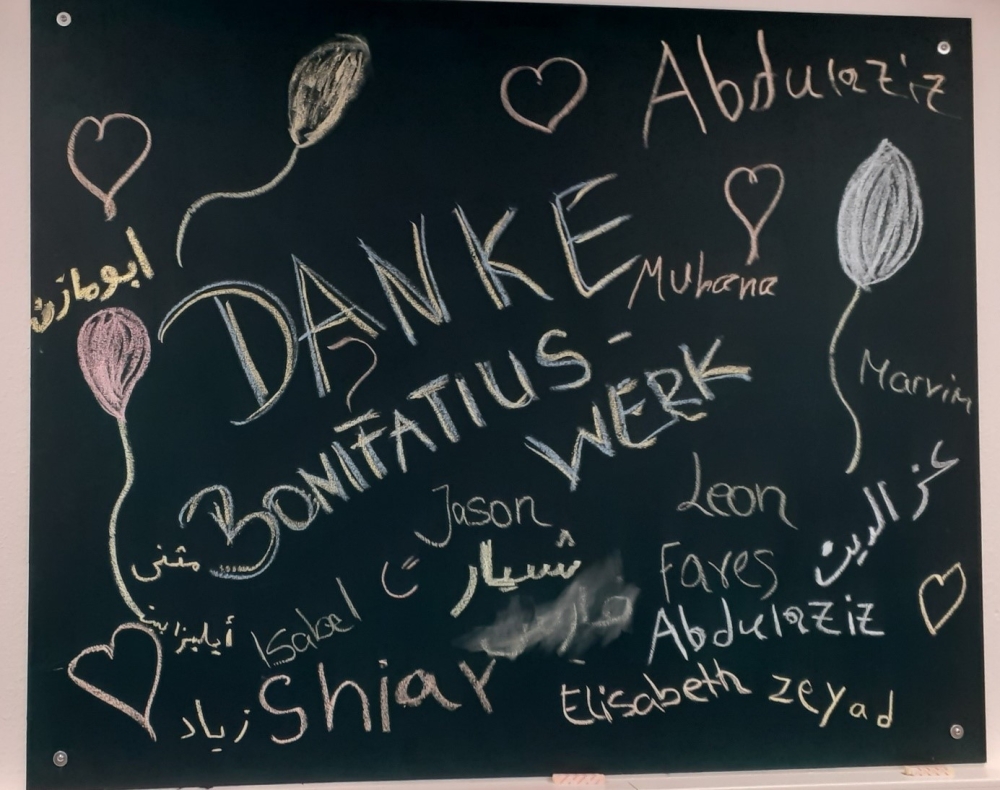 Abdulaziz
ابومازن
DANKE
Muhana
BONIFATIUS-
WERK
Marvin
Jason
Leon
عز الدين
مثنى
شيار
Fares
Isabel
Abdulaziz
Shiar
Elisabeth
zeyad
زياد